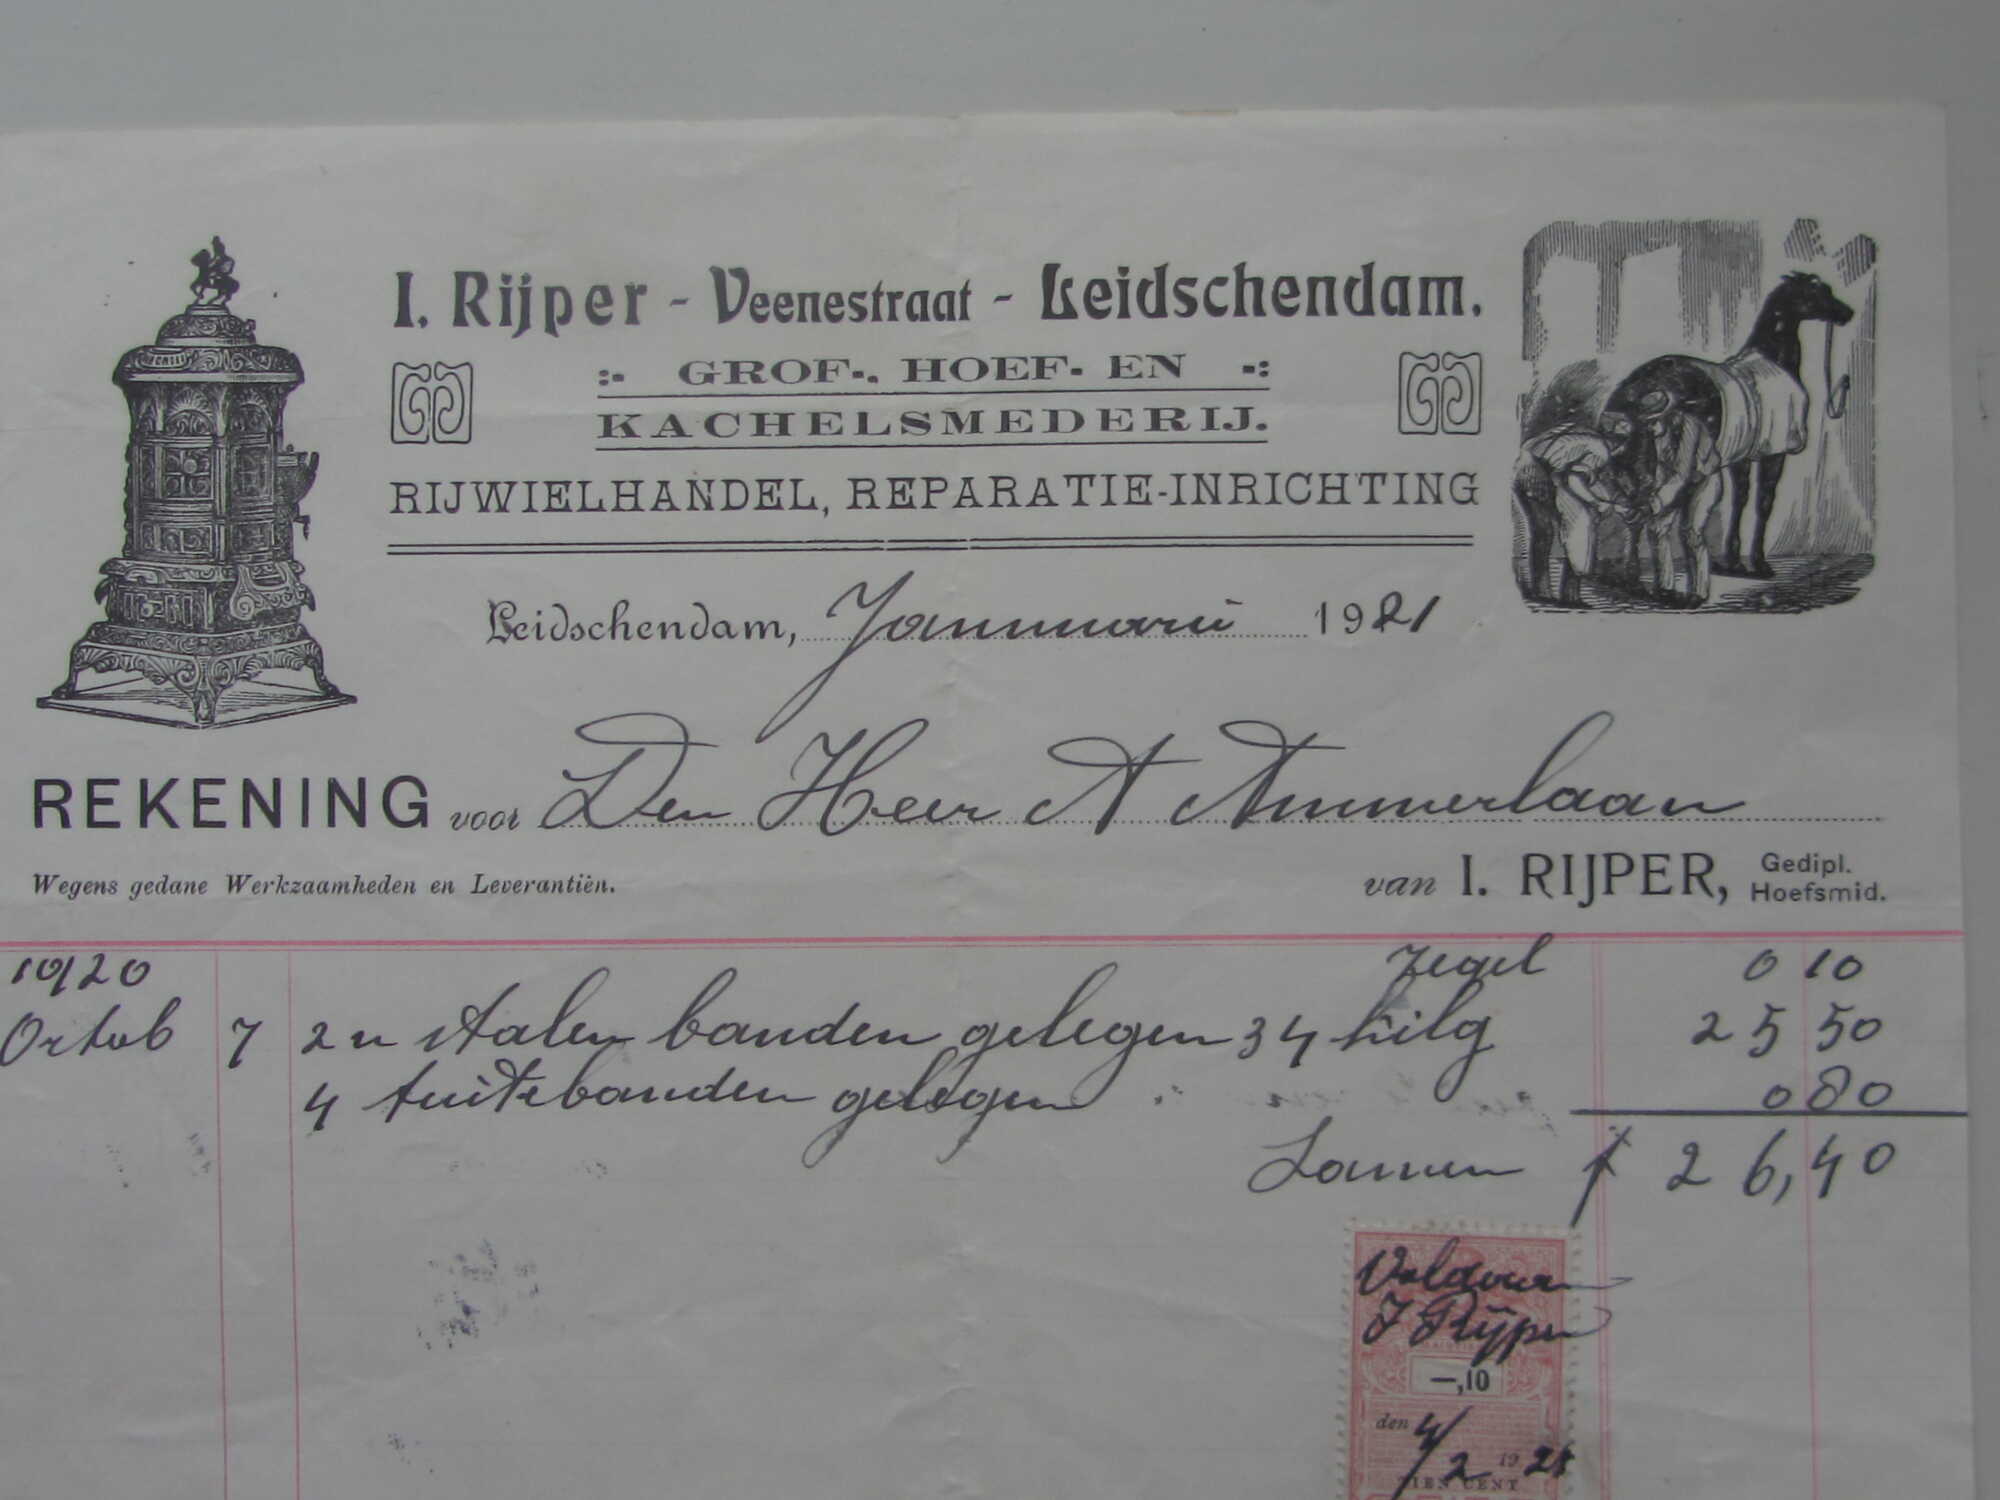 I. Rijper - Veenestraat - Leidschendam.
:- GROF-, HOEF- EN -:
KACHELSMEDERIJ.
RIJWIELHANDEL, REPARATIE-INRICHTING
Leidschendam, Jannuarii 1921
REKENING voor Den Heer A Ammerlaan
Wegens gedane Werkzaamheden en Leverantiën.
van I. RIJPER, Gedipl. Hoefsmid.
1920 Zegel 0 10
Octob 7 2 n stalen banden gelegen 34 kilg 25 50
4 tuitebanden gelegen 0 80
Samen f 26,40
Voldaan
J Rijper
—,10
den 4/2 1921
TIEN CENT